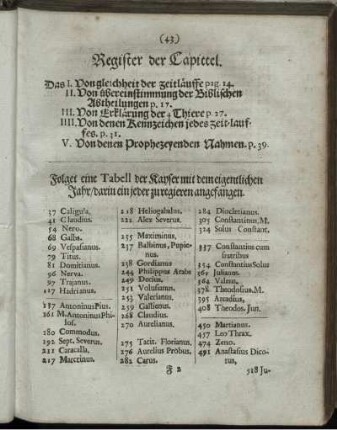 (43)
Register der Capittel.
Das I. Von gleichheit der zeitläuffe pag. 14.
II. Von übereinstimmung der Biblischen
Abtheilungen p. 17.
III. Von Erklärung der 4 Thiere p. 27.
IIII. Von denen Kennzeichen jedes zeit-lauf-
fes. p. 31.
V. Von denen Prophezeyenden Nahmen. p. 39.
Folget eine Tabell der Kayser mit dem eigentlichen
Jahr/darin ein jeder zu regieren angefangen.
37 Caligula.
41 Claudius.
54 Nero.
68 Galba.
69 Vespasianus.
79 Titus.
81 Domitianus.
96 Nerva.
97 Trajanus.
117 Hadrianus.
137 Antoninus Pius.
161 M. Antoninus Philosophus.
180 Commodus.
192 Sept. Severus.
211 Caracalla.
217 Macrinus.
218 Heliogabalus.
222 Alex Severus.
235 Maximinus.
237 Balbinus, Pupienus.
238 Gordianus
244 Philippus Arabs
249 Decius.
251 Volusianus.
253 Valerianus.
259 Gallienus.
268 Claudius.
270 Aurelianus.
275 Tacit. Florianus.
276 Aurelius Probus.
282 Carus.
284 Diocletianus.
305 Constantinus. M.
324 Solus Constant.
337 Constantius cum
fratribus
354 Constantius Solus
361 Julianus.
364 Valens.
378 Theodosius. M.
395 Arcadius,
408 Theodos. Jun.
450 Martianus.
457 Leo Thrax.
474 Zeno.
491 Anastasius Dicorus,
F 2
518 Ju-